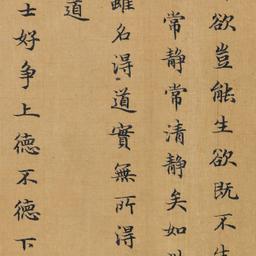 欲豈能生欲既不
常靜常清靜矣如
雖名得道實無所得
道
士好爭上德不德下